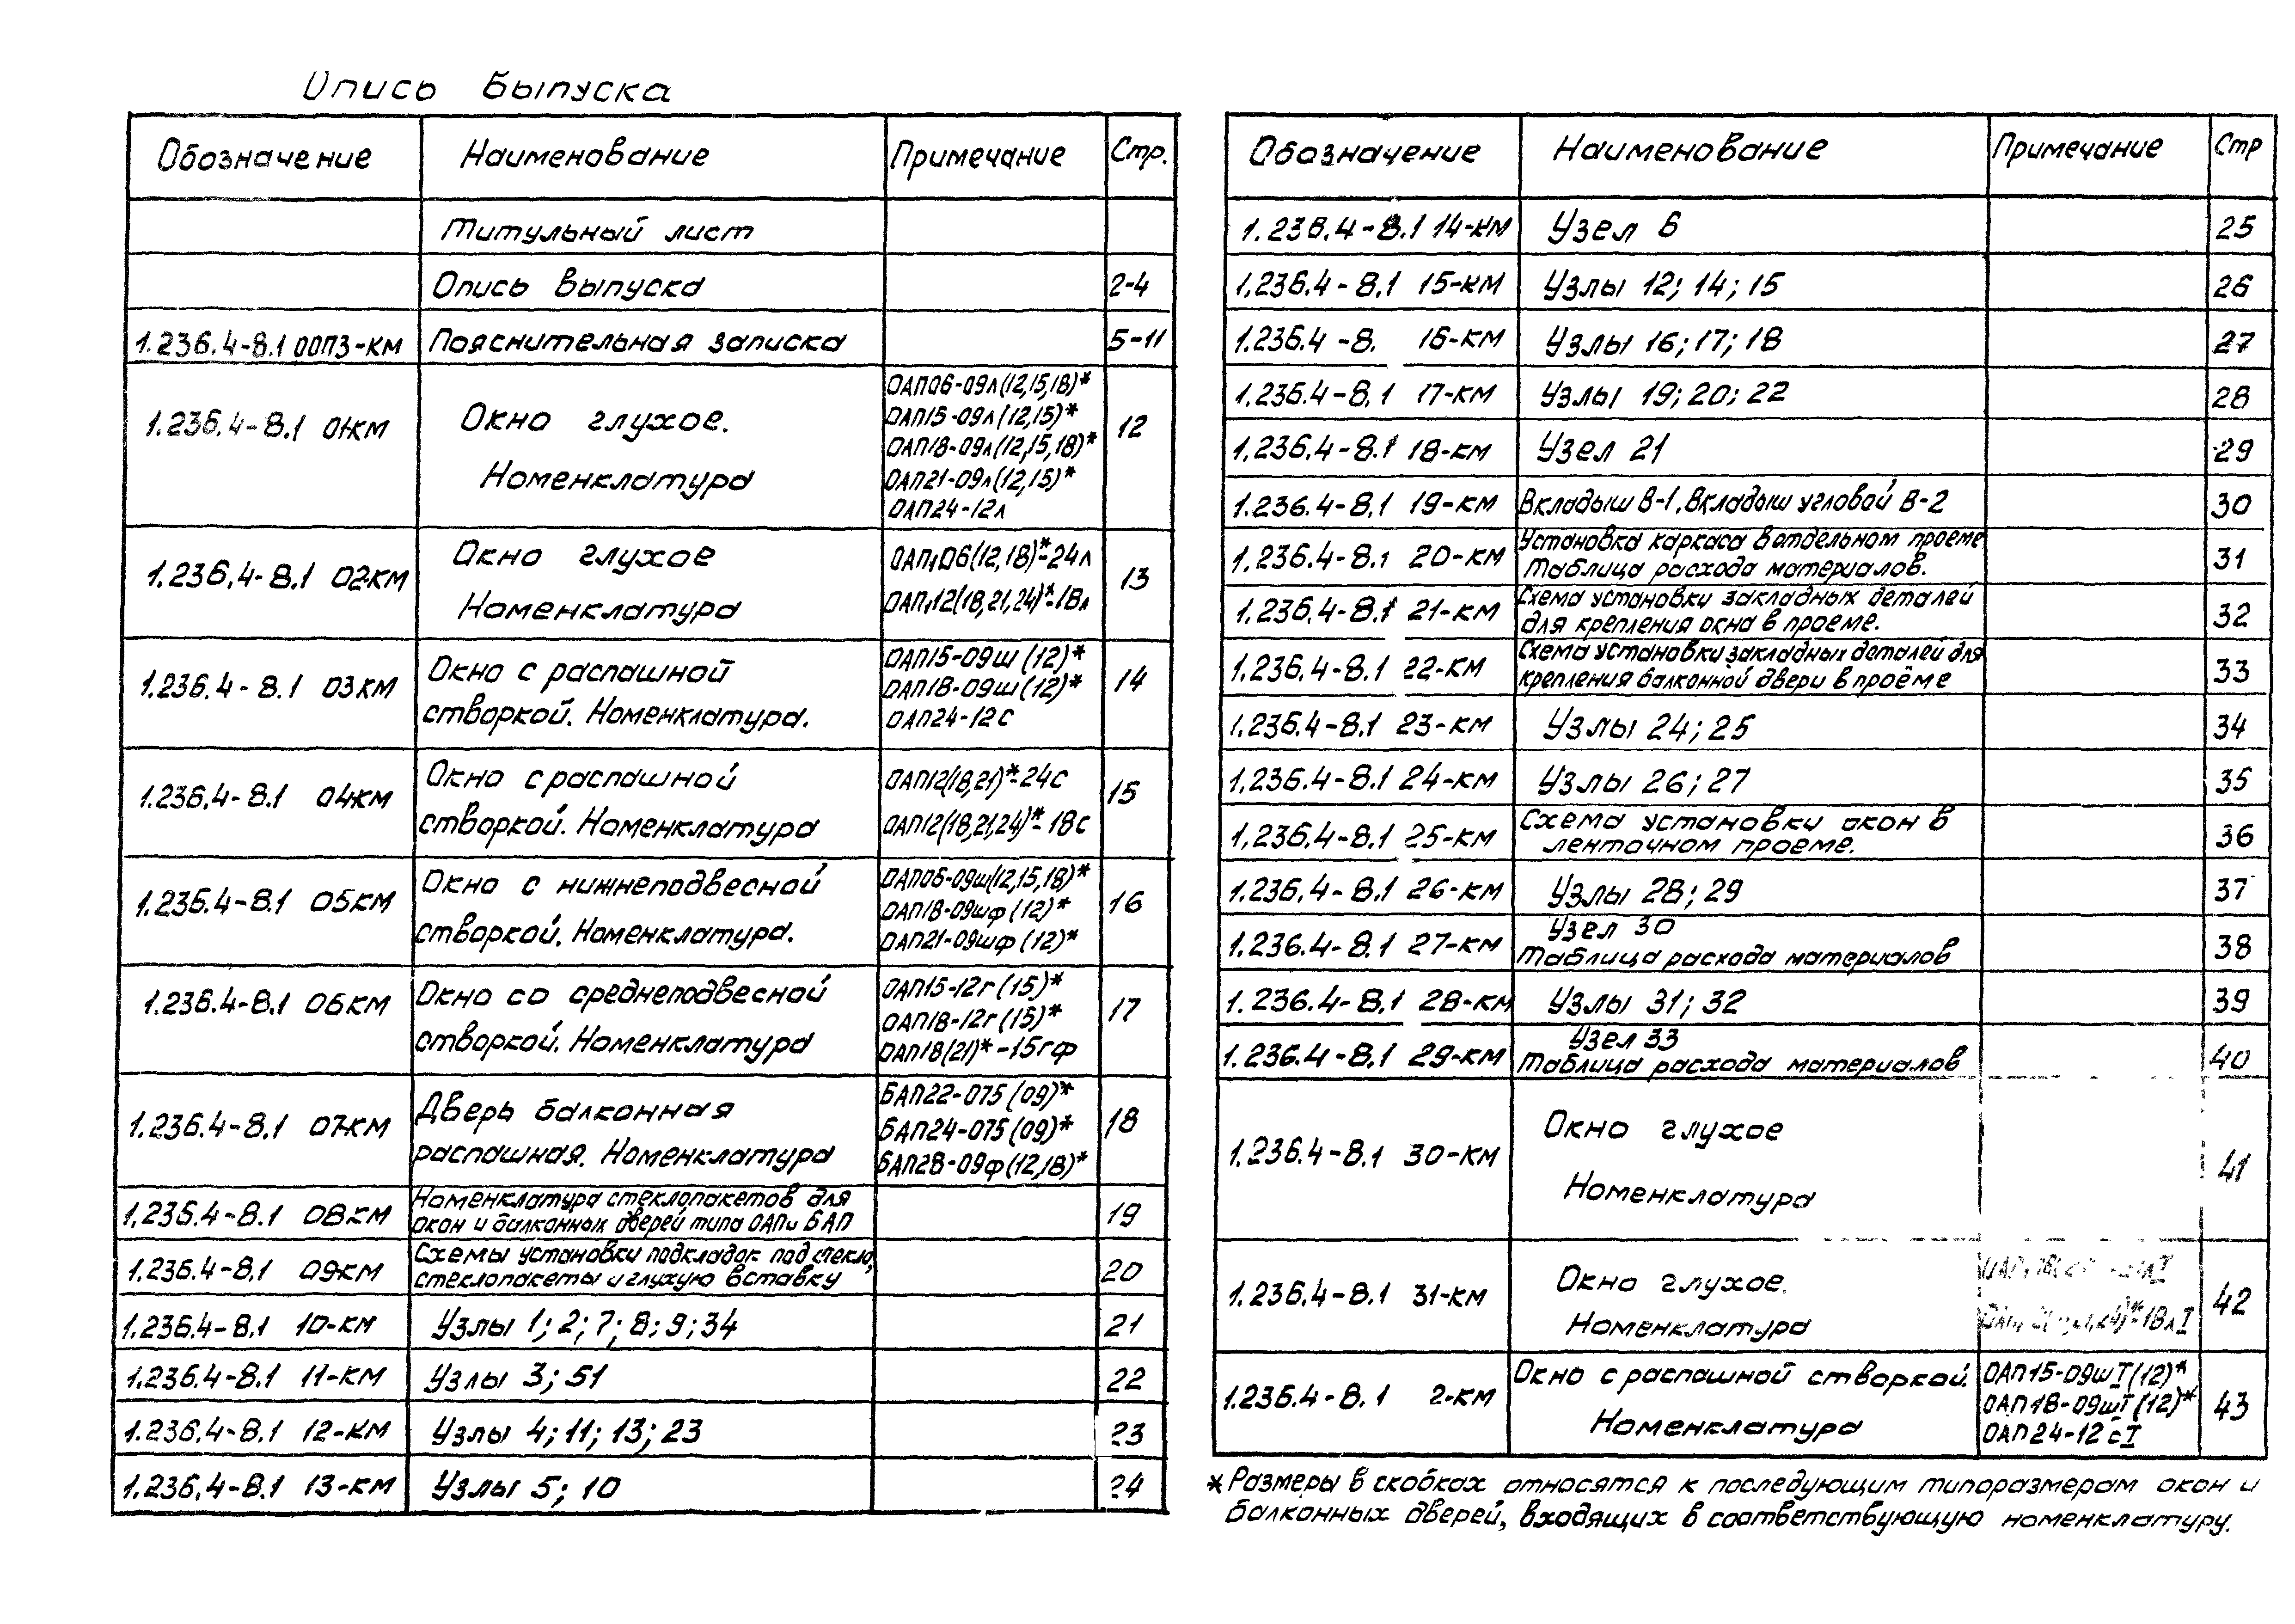 Опись выпуска
Обозначение Наименование Примечание Стр.
Титульный лист
Опись выпуска 2-4
1.236.4-8.1 00ПЗ-КМ Пояснительная записка 5-11
ОАП06-09л(12,15,18)*
ОАП15-09л(12,15)*
1.236.4-8.1 01-КМ Окно глухое. 12
ОАП18-09л(12,15,18)*
Номенклатура ОАП21-09л(12,15)*
ОАП24-12л
Окно глухое ОАП106(12,18)*-24л
1.236.4-8.1 02-КМ 13
Номенклатура ОАП112(18,21,24)*-18л
ОАП15-09ш(12)*
1.236.4-8.1 03КМ Окно с распашной ОАП18-09ш(12)* 14
створкой. Номенклатура. ОАП24-12с
Окно с распашной ОАП12(18,21)*-24с
1.236.4-8.1 04КМ 15
створкой. Номенклатура ОАП12(18,21,24)*-18с
Окно с нижнеподвесной ОАП06-09ш(12,15,18)*
1.236.4-8.1 05КМ ОАП18-09шф(12)* 16
створкой. Номенклатура. ОАП21-09шф(12)*
1.236.4-8.1 06КМ Окно со среднеподвесной ОАП15-12г(15)* 17
ОАП18-12г(15)*
створкой. Номенклатура ОАП18(21)*-15гф
БАП22-075(09)*
1.236.4-8.1 07-КМ Дверь балконная БАП24-075(09)* 18
распашная. Номенклатура БАП28-09ф(12,18)*
Номенклатура стеклопакетов для
1.236.4-8.1 08КМ окон и балконных дверей типа ОАП и БАП 19
Схемы установки подкладок под стекло,
1.236.4-8.1 09-КМ стеклопакеты и глухую вставку 20
1.236.4-8.1 10-КМ Узлы 1; 2; 7; 8; 9; 34 21
1.236.4-8.1 11-КМ Узлы 3; 51 22
1.236.4-8.1 12-КМ Узлы 4; 11; 13; 23 23
1.236.4-8.1 13-КМ Узлы 5; 10 24
Обозначение Наименование Примечание Стр
1.236.4-8.1 14-КМ Узел 6 25
1.236.4-8.1 15-КМ Узлы 12; 14; 15 26
1.236.4-8. 16-КМ Узлы 16; 17; 18 27
1.236.4-8.1 17-КМ Узлы 19; 20; 22 28
1.236.4-8.1 18-КМ Узел 21 29
1.236.4-8.1 19-КМ Вкладыш В-1, Вкладыш угловой В-2 30
Установка каркаса в отдельном проеме
1.236.4-8.1 20-КМ Таблица расхода материалов. 31
Схема установки закладных деталей
1.236.4-8.1 21-КМ для крепления окна в проеме. 32
Схема установки закладных деталей для
1.236.4-8.1 22-КМ крепления балконной двери в проёме 33
1.236.4-8.1 23-КМ Узлы 24; 25 34
1.236.4-8.1 24-КМ Узлы 26; 27 35
Схема установки окон в
1.236.4-8.1 25-КМ ленточном проеме. 36
1.236.4-8.1 26-КМ Узлы 28; 29 37
Узел 30
1.236.4-8.1 27-КМ Таблица расхода материалов 38
1.236.4-8.1 28-КМ Узлы 31; 32 39
Узел 33
1.236.4-8.1 29-КМ Таблица расхода материалов 40
Окно глухое
1.236.4-8.1 30-КМ 41
Номенклатура
Окно глухое.
1.236.4-8.1 31-КМ 42
Номенклатура
Окно с распашной створкой. ОАП15-09шI(12)*
1.236.4-8.1 2-КМ ОАП18-09шI(12)* 43
Номенклатура ОАП24-12сI
* Размеры в скобках относятся к последующим типоразмерам окон и
балконных дверей, входящих в соответствующую номенклатуру.